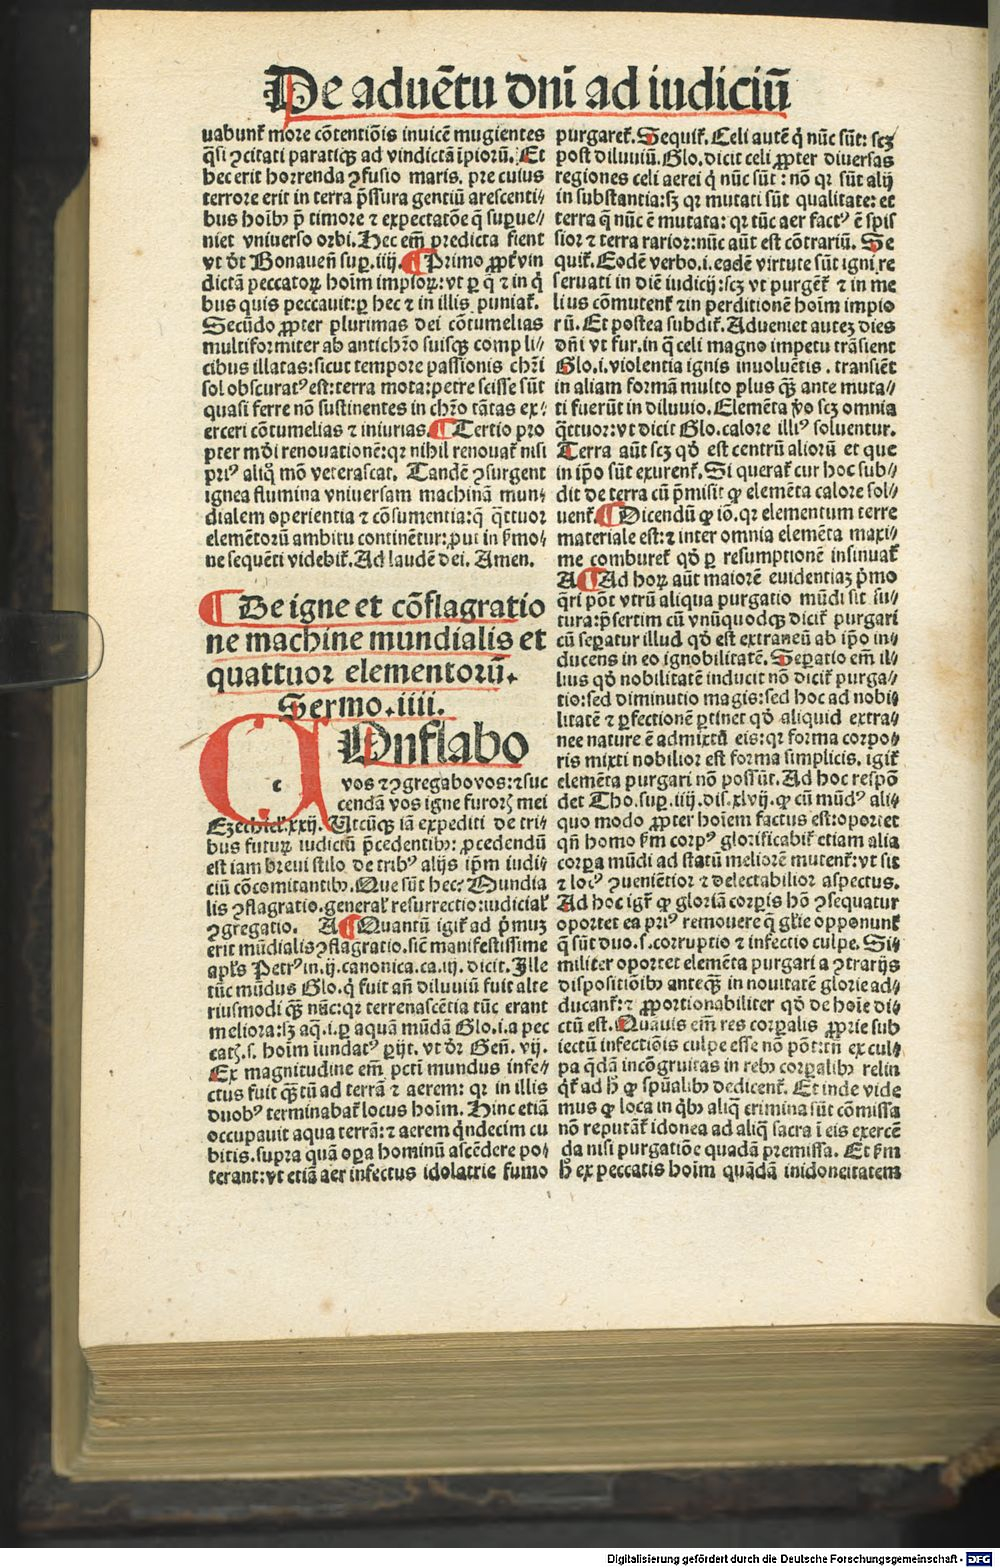 De aduētu dn̄i ad iudiciū
uabunt᷑ more cōtentiōis inuicē mugientes
q̄si ꝯcitati paratiqꝫ ad vindictā īpiorū. Et
hec erit horrenda ꝯfusio maris. pre cuius
terrore erit in terra p̄ssura gentiū arescenti⸗
bus hoībꝰ p̄ timore ⁊ expectatōe q̄ supue⸗
niet vniuerso orbi. Hec em̄ predicta fient
vt dr̄t Bonauen̄ suꝑ.iiij. Primo ꝓpt᷑ vin
dictā peccatoꝝ hoīm impioꝝ: vt ꝑ q̄ ⁊ in q̄
bus quis peccauit: ꝑ hec ⁊ in illis puniat᷑.
Secūdo ꝓpter plurimas dei cōtumelias
multiformiter ab antichr̄o suisqꝫ compli⸗
cibus illatas: sicut tempore passionis chr̄i
sol obscuratꝰ est: terra mota: petre scisse sūt
quasi ferre nō sustinentes in chr̄o tātas ex⸗
erceri cōtumelias ⁊ iniurias. Tertio pro
pter mūdi renouationē: qꝛ nihil renouat᷑ nisi
priꝰ aliq̊ mō veterascat. Tandē ꝯsurgent
ignea flumina vniuersam machinā mun⸗
dialem operientia ⁊ cōsumentia: q̄ q̄ttuor
elementorū ambitu continētur: ꝓut in ẜmo⸗
ne sequēti videbit᷑. Ad laudē dei. Amen.
De igne et cōflagratio
ne machine mundialis et
quattuor elementorū.
Sermo.iiii.
COnflabo
c
vos ⁊ ꝯgregabo vos: ⁊ suc
cendā vos igne furorꝭ mei
Ezechiel᷑.xxij. Vtcūqꝫ iā expediti de tri⸗
bus futuꝝ iudiciū p̄cedentibꝰ: ꝓcedendū
est iam breui stilo de tribꝰ alijs ip̄m iudi⸗
ciū cōcomitantibꝰ. Que sūt hec: Mundia
lis ꝯflagratio. general᷑ resurrectio: iudicial᷑
ꝯgregatio. A Quantū igit᷑ ad p̄muꝫ
erit mūdialis ꝯflagratio. sic̄ manifestissime
apl̄s Petrꝰ in.ij. canonica.ca.iij. dicit. Ille
tūc mūdus Glo. q̄ fuit an̄ diluuiū fuit alte
riusmodi qꝫ̄ nūc: qꝛ terrenascētia tūc erant
meliora: sꝫ aq̄.i.ꝑ aquā mūdā Glo.i.a pec
catꝭ.s. hoīm iundatꝰ ꝑijt. vt dr̄ Gen̄. vij.
Ex magnitudine em̄ pcti mundus infe⸗
ctus fuit qꝫ̄tū ad terrā ⁊ aerem: qꝛ in illis
duobꝰ terminabat᷑ locus hoīm. Hinc etiā
occupauit aqua terrā: ⁊ aerem q̄ndecim cu
bitis. supra quā oꝑa hominū ascēdere po⸗
terant: vt etiā aer infectus idolatrie fumo
purgaret᷑. Sequit᷑. Celi autē q̄ nūc sūt: scꝫ
post diluuiū. Glo. dicit celi ꝓpter diuersas
regiones celi aerei q̄ nūc sūt: nō qꝛ sūt alij
in substantia: sꝫ qꝛ mutati sūt qualitate: et
terra q̄ nūc ē mutata: qꝛ tūc aer factꝰ ē spis
sior ⁊ terra rarior: nūc aūt est cōtrariū. Se
quit᷑. Eodē verbo.i. eadē virtute sūt igni re
seruati in diē iudicij: scꝫ vt purgēt᷑ ⁊ in me
lius cōmutent᷑ ⁊ in perditionē hoīm impio
rū. Et postea subdit᷑. Adueniet auteꝫ dies
dn̄i vt fur. in q̄ celi magno impetu trāsient
Glo.i. violentia ignis inuoluētis. transiēt
in aliam formā multo plus qꝫ̄ ante muta⸗
ti fuerūt in diluuio. Elemēta ꝟo scꝫ omnia
q̄ttuor: vt dicit Glo. calore illiꝰ soluentur.
Terra aūt scꝫ qd̄ est centrū aliorū et que
in ip̄o sūt exurent᷑. Si querat᷑ cur hoc sub⸗
dit de terra cū p̄misit ꝙ elemēta calore sol⸗
uent᷑. Dicendū ꝙ iō. qꝛ elementum terre
materiale est: ⁊ inter omnia elemēta maxi⸗
me comburet᷑ qd̄ ꝑ resumptionē insinuat᷑
A Ad hoꝝ aūt maiorē euidentiaꝫ p̄mo
q̄ri pōt vtrū aliqua purgatio mūdi sit fu⸗
tura: p̄sertim cū vnūquodqꝫ dicit᷑ purgari
cū seꝑatur illud qd̄ est extraneū ab ip̄o in⸗
ducens in eo ignobilitatē. Seꝑatio em̄ il⸗
lius qd̄ nobilitatē inducit nō dicit᷑ purga⸗
tio: sed diminutio magis: sed hoc ad nobi⸗
litatē ⁊ ꝑfectionē ꝑtinet qd̄ aliquid extra⸗
nee nature ē admixtū eis: qꝛ forma corpo⸗
ris mixti nobilior est forma simplicis. igit᷑
elemēta purgari nō possūt. Ad hoc respō
det Tho. suꝑ.iiij.dis.xlvij. ꝙ cū mūdꝰ ali⸗
quo modo ꝓpter hoīem factus est: oportet
qn̄ homo ẜm corpꝰ glorificabit᷑ etiam alia
corꝑa mūdi ad statū meliorē mutent᷑: vt sit
⁊ locꝰ ꝯuenientior ⁊ delectabilior aspectus.
Ad hoc igit᷑ ꝙ gloriā corꝑis hō ꝯsequatur
oportet ea priꝰ remouere q̄ gl̄ie opponunt᷑
q̄ sūt duo.s. corruptio ⁊ infectio culpe. Si⸗
militer oportet elemēta purgari a ꝯtrarijs
dispositiōibꝰ anteqꝫ̄ in nouitatē glorie ad⸗
ducant᷑: ⁊ ꝓportionabiliter qd̄ de hoīe di⸗
ctū est. Quāuis em̄ res corꝑalis ꝓprie sub
iectū infectiōis culpe esse nō pōt: tn̄ ex cul⸗
pa q̄dā incōgruitas in rebꝰ corꝑalibꝰ relin
q̄t᷑ ad h̄ ꝙ spūalibꝰ dedicent᷑. Et inde vide
mus ꝙ loca in q̄bꝰ aliq̄ crimina sūt cōmissa
nō reputāt᷑ idonea ad aliq̄ sacra ī eis exercē
da nisi purgatiōe quadā premissa. Et ẜm
h̄ ex peccatis hoīm quādā inidoneitatem
Digitalisierung gefördert durch die Deutsche Forschungsgemeinschaft - DFG